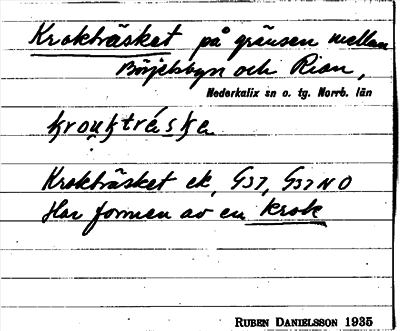 Krokträsket på gränsen mellan
Börjelsbyn och Rian,
Nederkalix sn o. tg. Norrb. län
kroukträska
Krokträsket ek. G37, G37NO
Har formen av en krok
RUBEN DANIELSSON 1935